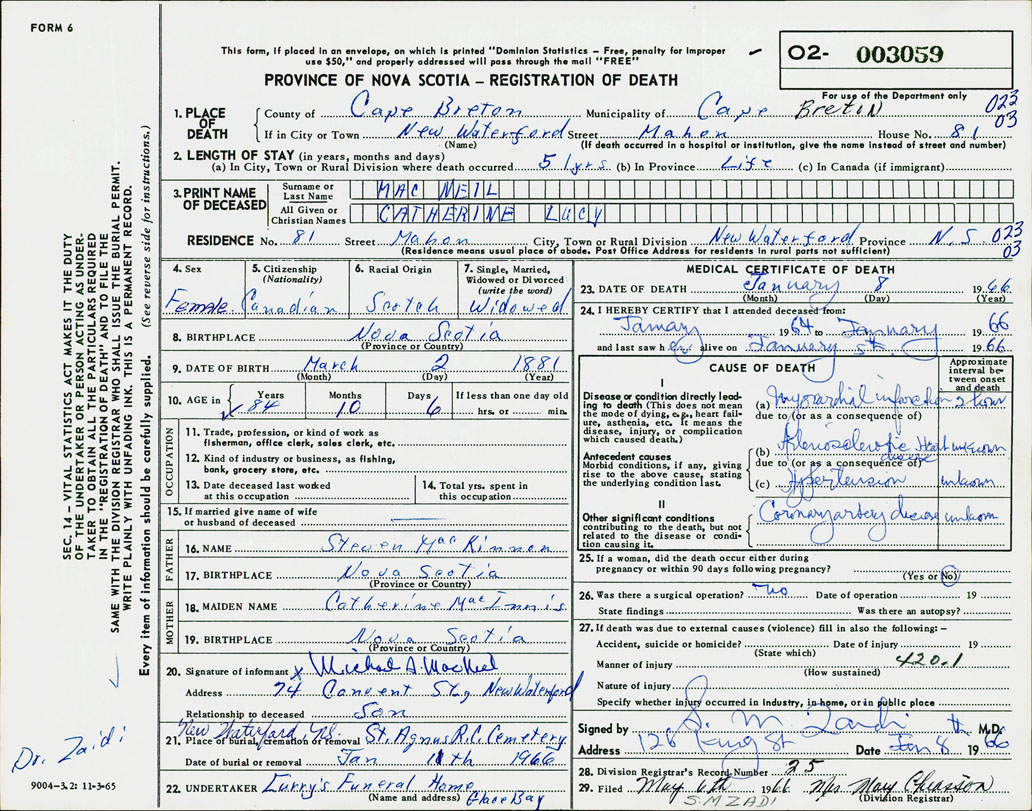 FORM 6
This form, if placed in an envelope, on which is printed "Dominion Statistics – Free, penalty for improper
use $50," and properly addressed will pass through the mail "FREE"
O2- 003059
PROVINCE OF NOVA SCOTIA – REGISTRATION OF DEATH
For use of the Department only
1. PLACE OF DEATH County of Cape Breton Municipality of Cape Breton 023
If in City or Town New Waterford Street Mahon House No. 81 03
(Name) (If death occurred in a hospital or institution, give the name instead of street and number)
2. LENGTH OF STAY (in years, months and days)
(a) In City, Town or Rural Division where death occurred 51 yrs. (b) In Province Life (c) In Canada (if immigrant)
3. PRINT NAME OF DECEASED Surname or Last Name MAC NEIL
All Given or Christian Names CATHERINE LUCY
RESIDENCE No. 81 Street Mahon City, Town or Rural Division New Waterford Province N.S. 023
(Residence means usual place of abode. Post Office Address for residents in rural parts not sufficient) 03
4. Sex Female
5. Citizenship (Nationality) Canadian
6. Racial Origin Scotch
7. Single, Married, Widowed or Divorced (write the word) Widowed
8. BIRTHPLACE Nova Scotia
(Province or Country)
9. DATE OF BIRTH March 2 1881
(Month) (Day) (Year)
10. AGE in Years 84 Months 10 Days 6 If less than one day old hrs. or min.
OCCUPATION
11. Trade, profession, or kind of work as fisherman, office clerk, sales clerk, etc.
12. Kind of industry or business, as fishing, bank, grocery store, etc.
13. Date deceased last worked at this occupation
14. Total yrs. spent in this occupation
15. If married give name of wife or husband of deceased
FATHER
16. NAME Steven MacKinnon
17. BIRTHPLACE Nova Scotia
(Province or Country)
MOTHER
18. MAIDEN NAME Catherine MacInnis
19. BIRTHPLACE Nova Scotia
(Province or Country)
20. Signature of informant x Michael A. MacNeil
Address 74 Convent St., New Waterford
Relationship to deceased Son
New Waterford, N.S.
21. Place of burial, cremation or removal St. Agnus R.C. Cemetery
Date of burial or removal Jan 11th 1966
22. UNDERTAKER Curry's Funeral Home
(Name and address) Glace Bay
MEDICAL CERTIFICATE OF DEATH
23. DATE OF DEATH January 8 1966
(Month) (Day) (Year)
24. I HEREBY CERTIFY that I attended deceased from:
January 1964 to January 1966
and last saw her alive on January 1966
CAUSE OF DEATH
Approximate interval between onset and death
I
Disease or condition directly leading to death (This does not mean the mode of dying, e.g., heart failure, asthenia, etc. It means the disease, injury, or complication which caused death.)
(a) Myocardial infarction 2 hours
due to (or as a consequence of)
Antecedent causes
Morbid conditions, if any, giving rise to the above cause, stating the underlying condition last.
(b) Arteriosclerotic Heart disease unknown
due to (or as a consequence of)
(c) Hypertension unknown
II
Other significant conditions contributing to the death, but not related to the disease or condition causing it.
Coronary artery disease unknown
25. If a woman, did the death occur either during
pregnancy or within 90 days following pregnancy?
(Yes or No)
26. Was there a surgical operation? No Date of operation 19
State findings Was there an autopsy?
27. If death was due to external causes (violence) fill in also the following:–
Accident, suicide or homicide? Date of injury 19
(State which)
Manner of injury 420.1
(How sustained)
Nature of injury
Specify whether injury occurred in industry, in home, or in public place
Signed by S. M. Zaidi M.D.
Address 126 King St Date Jan 8th 1966
28. Division Registrar's Record Number 25
29. Filed May 6th 1966 Mrs May Chiasson
S.M ZADI (Division Registrar)
SEC. 14 – VITAL STATISTICS ACT MAKES IT THE DUTY
OF THE UNDERTAKER OR PERSON ACTING AS UNDER-
TAKER TO OBTAIN ALL THE PARTICULARS REQUIRED
IN THE "REGISTRATION OF DEATH" AND TO FILE THE
SAME WITH THE DIVISION REGISTRAR WHO SHALL ISSUE THE BURIAL PERMIT.
WRITE PLAINLY WITH UNFADING INK. THIS IS A PERMANENT RECORD.
Every item of information should be carefully supplied. (See reverse side for instructions.)
Dr. Zaidi
9004-3.2: 11-3-65